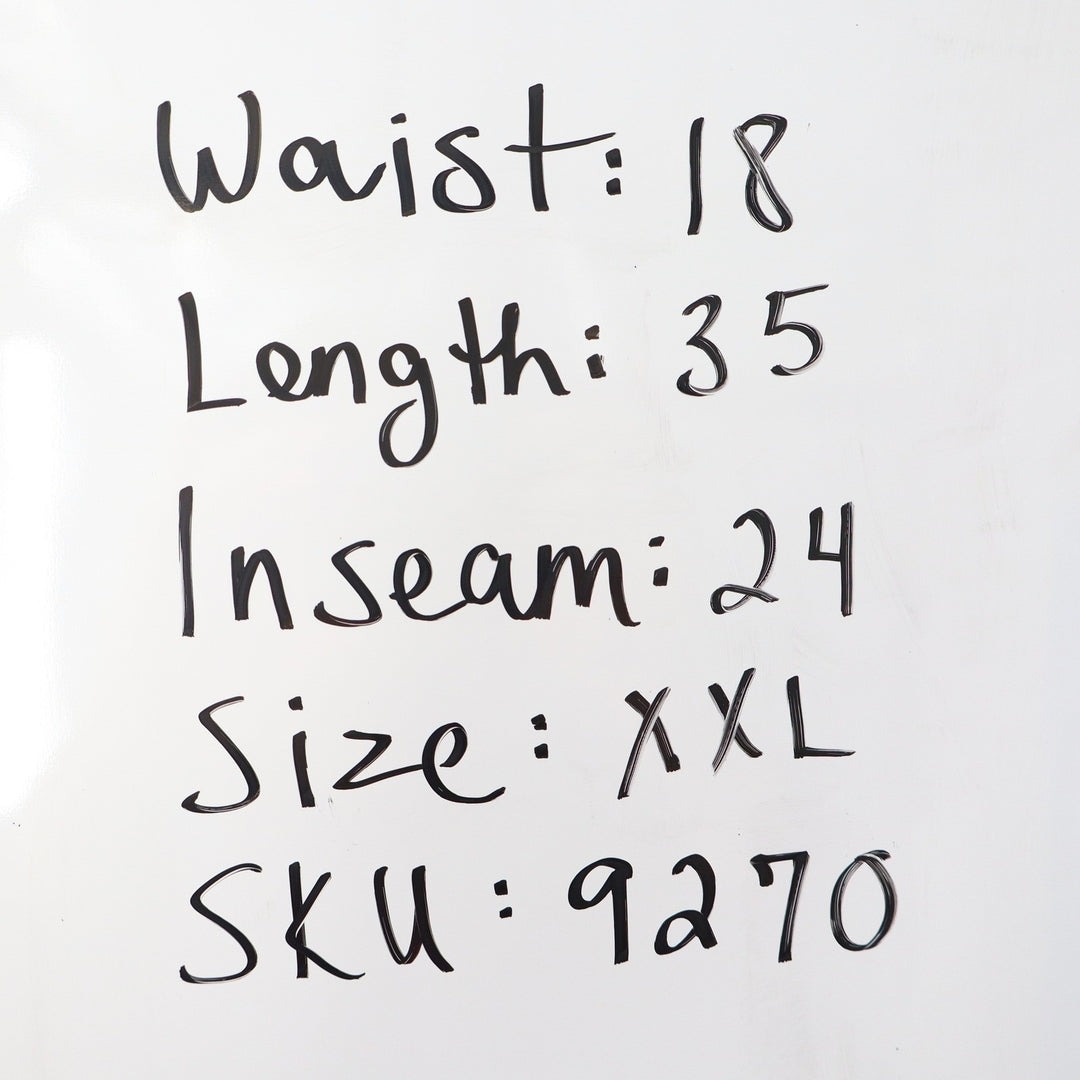 Waist: 18
Length: 35
Inseam: 24
Size: XXL
SKU: 9270